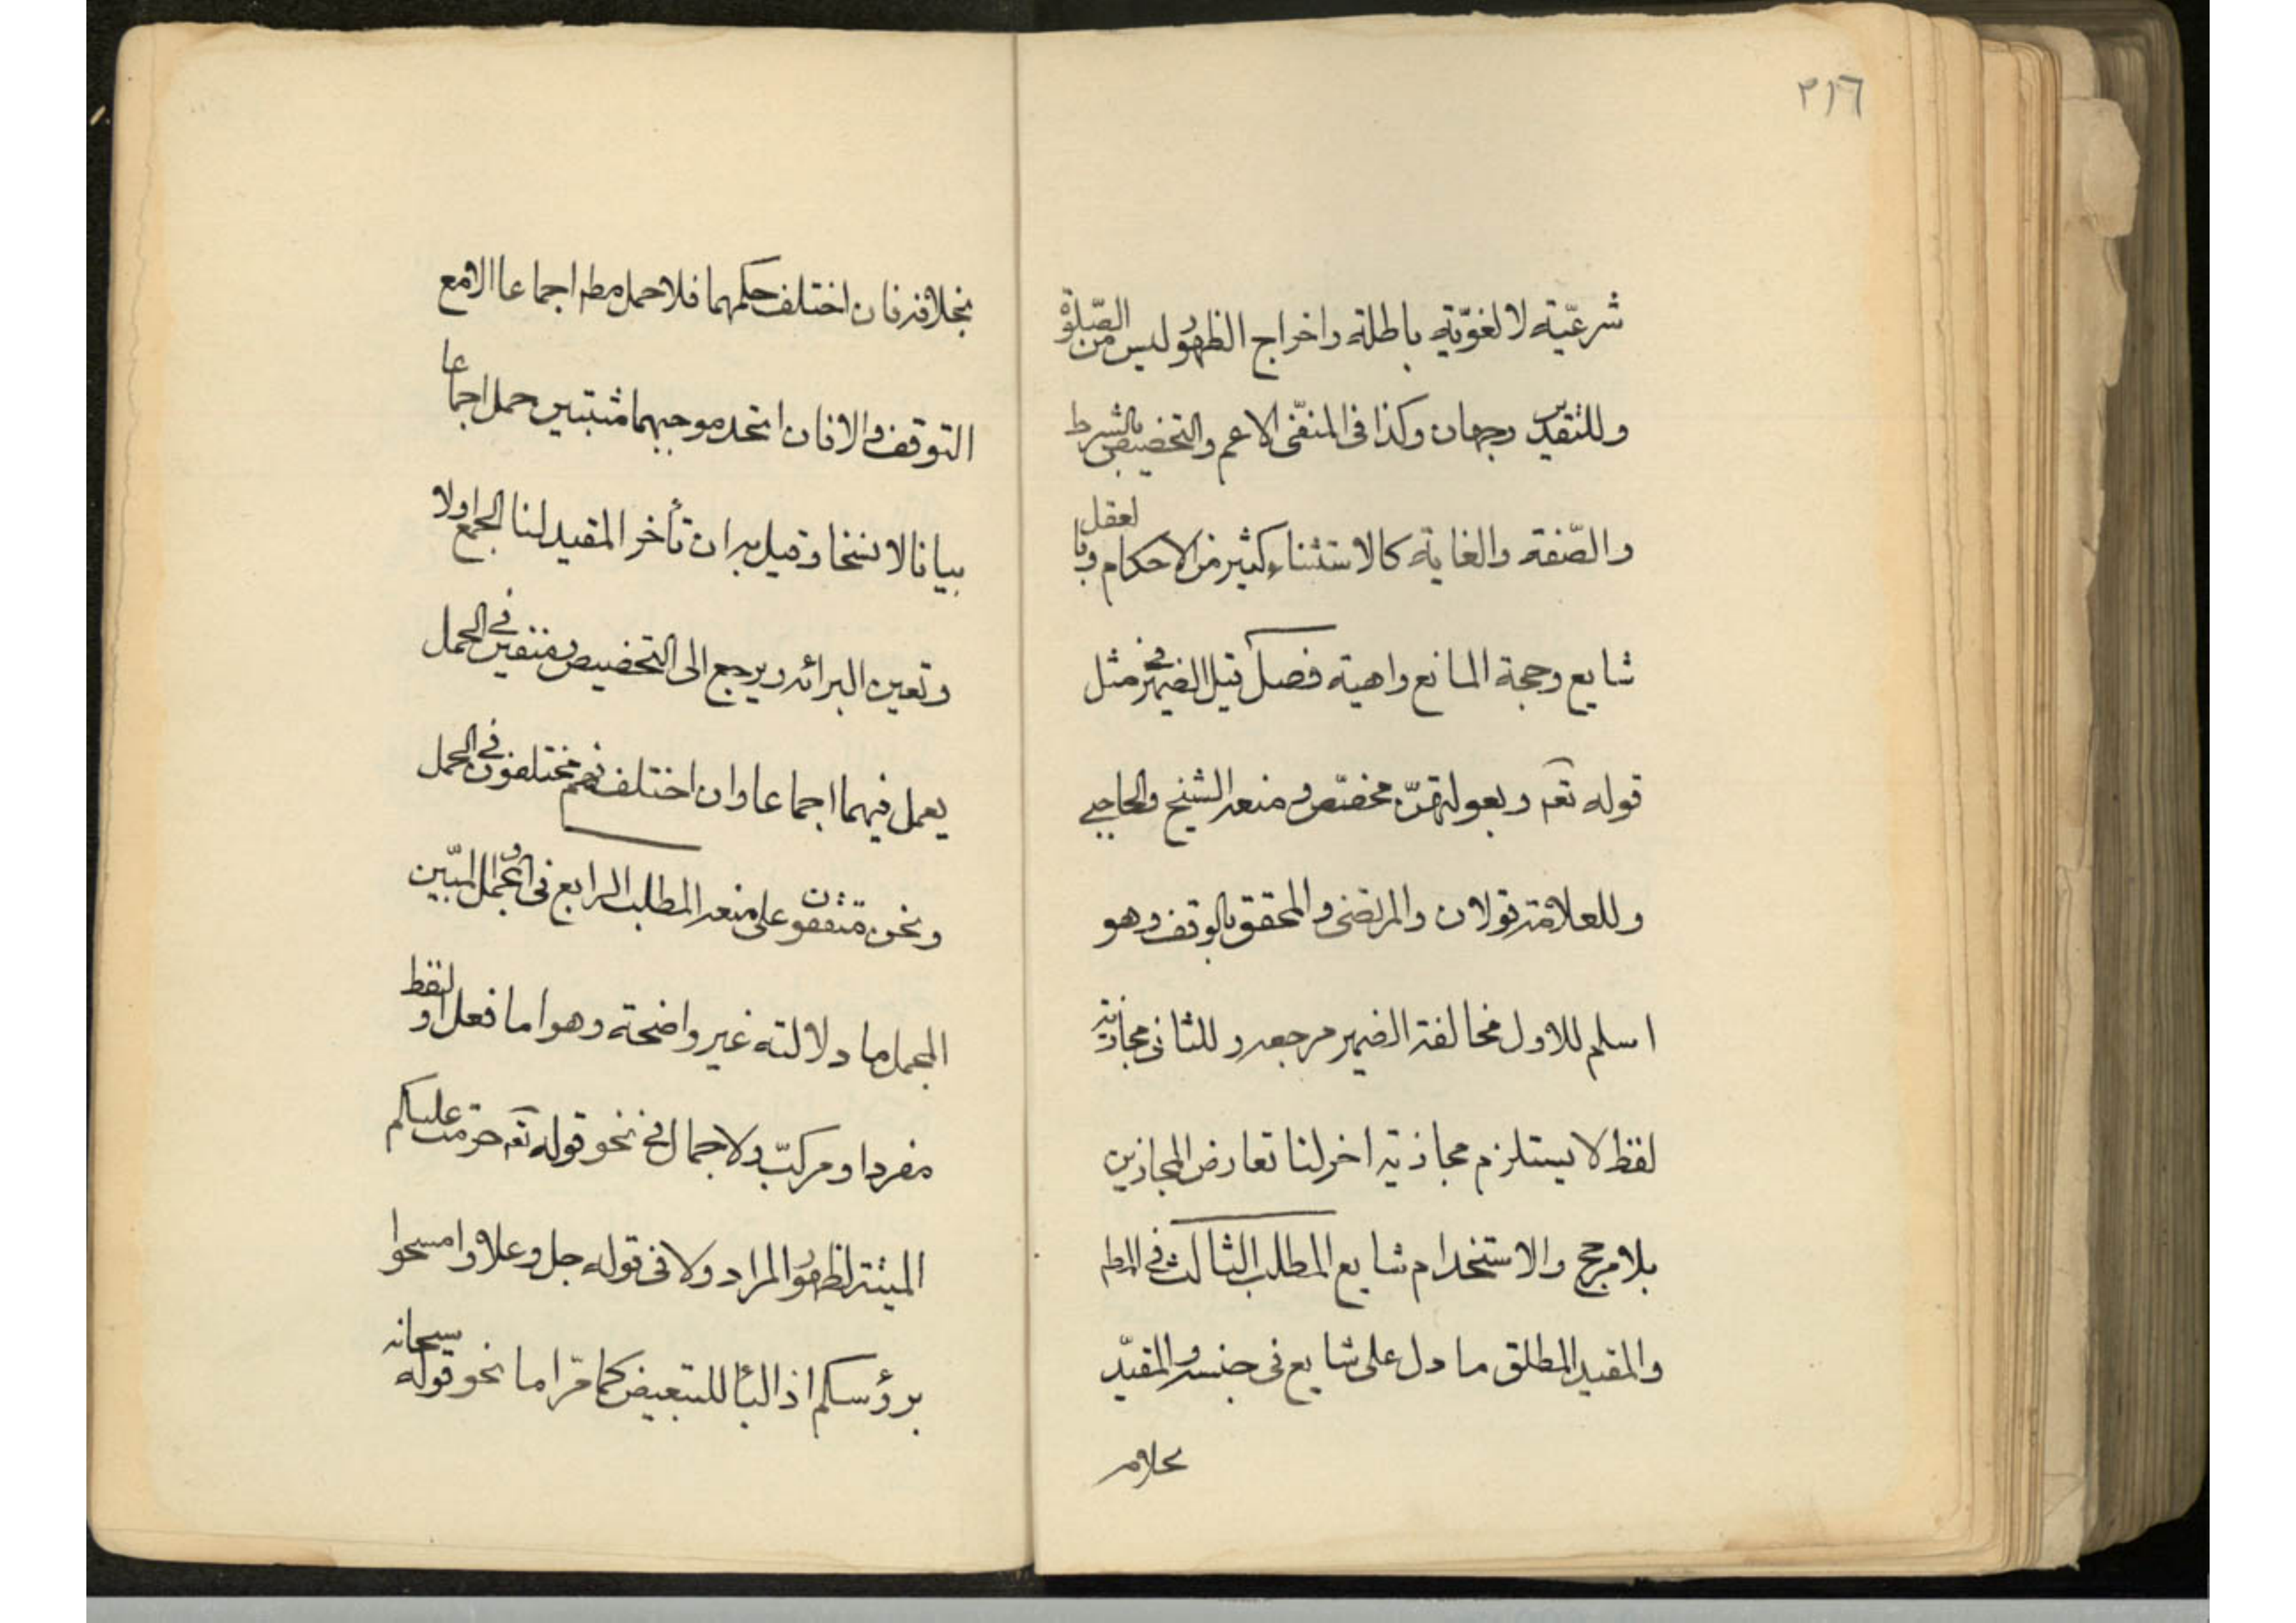 ٣١٦
شرعيّة لا لغويّة باطلة واخراج الظهور ليس من الصّلوة
وللتقدير وجهان وكذا في المنفّى الاعم والتخصيص بالشرط
والصّفة والغاية كالاستثناء وكثير من الاحكام وبا لعقل
شايع وحجة المانع واهية فصل قيل الضمير في مثل
قوله تعـ وبعولتهنّ مخصّص ومنعه الشيخ والحاجبي
وللعلامة قولان والمرتضى والمحقق بالوقف وهو
اسلم للاول مخالفة الضمير مرجعه وللثاني مجازية
لفظ لا يستلزم مجازية اخر لنا تعارض المجازين
بلا مرجح والاستخدام شايع المطلب الثالث في المطـ
والمقيد المطلق ما دل على شايع في جنسه والمقيّد
بخلافه
بخلافه فان اختلف حكمهما فلا حمل مطـ اجماعا الا مع
التوقف والا فان اتحد موجبهما مثبتين حمل اجماعا
بيانا لا نسخا وقيل به ان تأخر المقيد لنا الجمع اولا
وتعين البرائه ويرجع الى التخصيص ومنفيين في الحمل
يعمل فيهما اجماعا وان اختلف فهم مختلفون في الحمل
ونحن متفقون على منعه المطلب الرابع في المجمل والمبّين
المجمل ما دلالته غير واضحة وهو اما فعل او لفظ
مفرد او مركّب ولا اجمال في نحو قوله تعـ حرّمت عليكم
الميتة لظهور المراد ولا في قوله جل وعلا وامسحوا
برؤسكم اذ البأ للتبعيض كما مرّ اما نحو قوله سبحانه